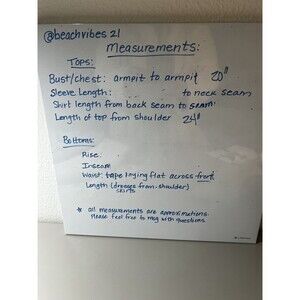 @beachvibes21
Measurements:
Tops:
Bust/chest: armpit to armpit 20"
Sleeve Length: to neck seam
Shirt length from back seam to seam:
Length of top from shoulder 24"
Bottoms:
Rise:
Inseam
Waist: tape laying flat across front
Length (dresses from shoulder)
skirts
* all measurements are approximations.
Please feel free to msg with questions